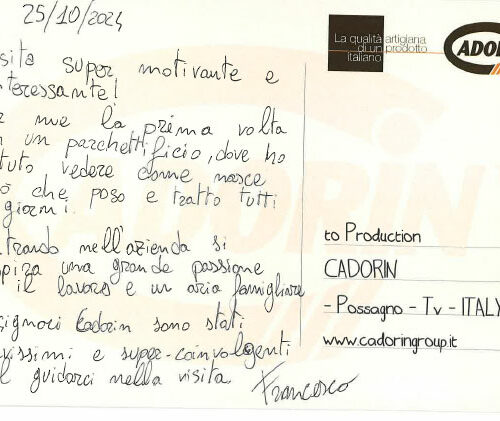 25/10/2024
sita super motivante e
teressante!
me la prima volta
un parchettificio, dove ho
tuto vedere come nasce
ò che poso e tratto tutti
giorni.
trando nell'azienda si
spira una grande passione
il lavoro e un aria famigliare
signori Cadorin sono stati
issimi e super-coinvolgenti
l guidarci nella visita. Francesco
La qualità artigiana
di un prodotto
italiano
ADOR
CADORIN
to Production
CADORIN
- Possagno - Tv - ITALY
www.cadoringroup.it